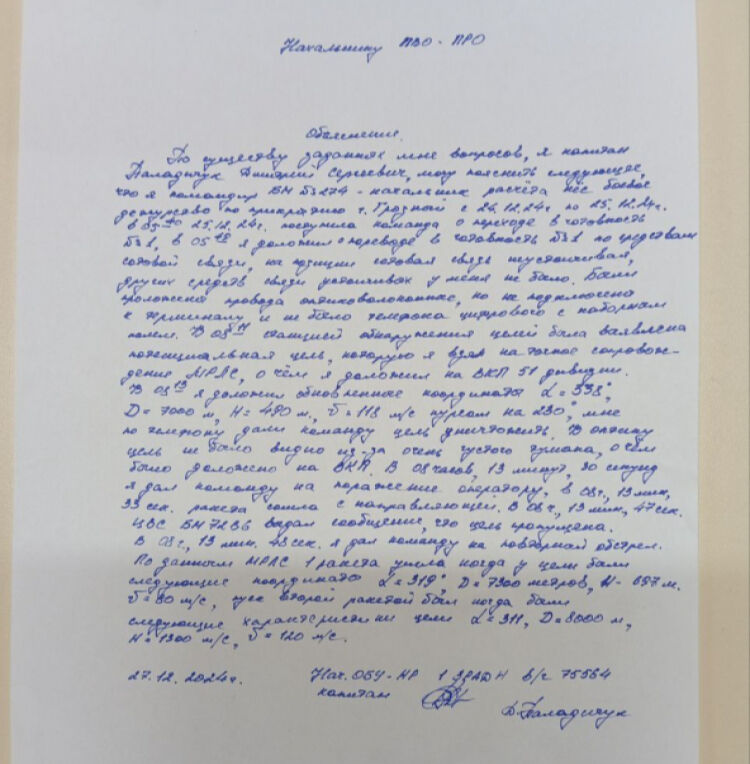 Начальнику ПВО-ПРО
Объяснение.
По существу заданных мне вопросов, я капитан
Паладичук Дмитрий Сергеевич, могу пояснить следующее,
что я командир БМ Бз 274 - начальник расчёта нёс боевое
дежурство по прикрытию г. Грозный с 26.12.24г по 25.12.24г.
в 05 40 25.12.24г. поступила команда о переводе в готовность
№1, в 05 я доложил о переводе в готовность №1 по средствам
сотовой связи, на позиции сотовая связь неустойчивая,
других средств связи устойчивых у меня не было. Были
проложены провода оптиковолоконные, но не подключены
к терминалу и не было телефона цифрового с наборным
полем. В 08 11 станцией обнаружения целей была выявлена
потенциальная цель, которую я взял на точное сопровож-
дение МРЛС, о чём я доложил на ВКП 51 дивизии.
В 08 13 я доложил обновленные координаты α = 338°,
D = 7000 м, H = 480 м, v = 118 м/с курсом на 230°, мне
по телефону дали команду цель уничтожить. В оптику
цель не было видно из-за очень густого тумана, о чём
было доложено на ВКП. В 08 часов, 13 минут, 30 секунд
я дал команду на поражение оператору, в 08ч, 13 мин,
33 сек. ракета сошла с направляющей. В 08 ч, 13 мин, 47 сек.
ЦВС БМ 72В6 выдал сообщение, что цель пропущена.
В 08 ч, 13 мин. 48 сек. я дал команду на повторный обстрел.
По данным МРЛС 1 ракета ушла когда у цели были
следующие координаты α = 319°, D = 7300 метров, H - 657 м.
v = 80 м/с, пуск второй ракетой был когда были
следующие характеристики цели α = 311, D = 8000 м,
H = 1300 м/с, v = 120 м/с.
27.12.2024г. Нач. ОБУ-НР 1 ЗРАДН в/с 75564
капитан Д. Паладичук